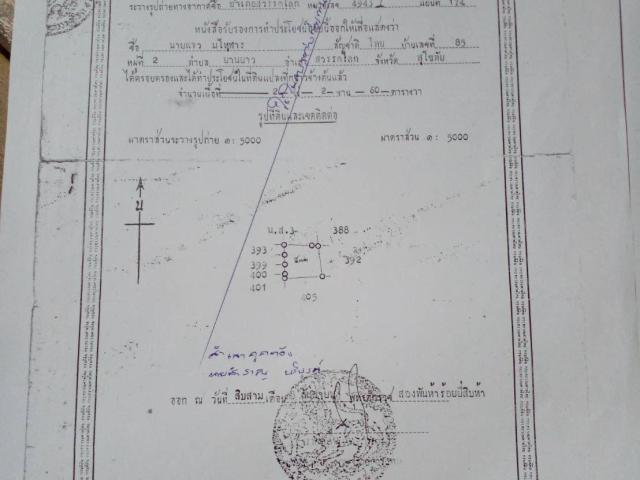 ระวางรูปถ่ายทางอากาศชื่อ อำเภอสวรรคโลก หมายเลข 4943 I แผ่นที่ 174
หนังสือรับรองการทำประโยชน์ฉบับนี้ออกให้เพื่อแสดงว่า
ชื่อ นายแถว มโหฬาร สัญชาติ ไทย บ้านเลขที่ 85
หมู่ที่ 2 ตำบล ย่านยาว อำเภอ สวรรคโลก จังหวัด สุโขทัย
ได้ครอบครองและได้ทำประโยชน์ในที่ดินแปลงที่กล่าวข้างต้นแล้ว
จำนวนเนื้อที่ 2 ไร่ 2 งาน 60 ตารางวา
รูปที่ดินและเขตติดต่อ
มาตราส่วนระวางรูปถ่าย ๑: 5000 มาตราส่วน ๑: 5000
น
น.ส.3 388
393
399 392
400
401
405
สำเนาถูกต้อง
ออก ณ วันที่ สิบสาม เดือน พุทธศักราช สองพันห้าร้อยยี่สิบห้า